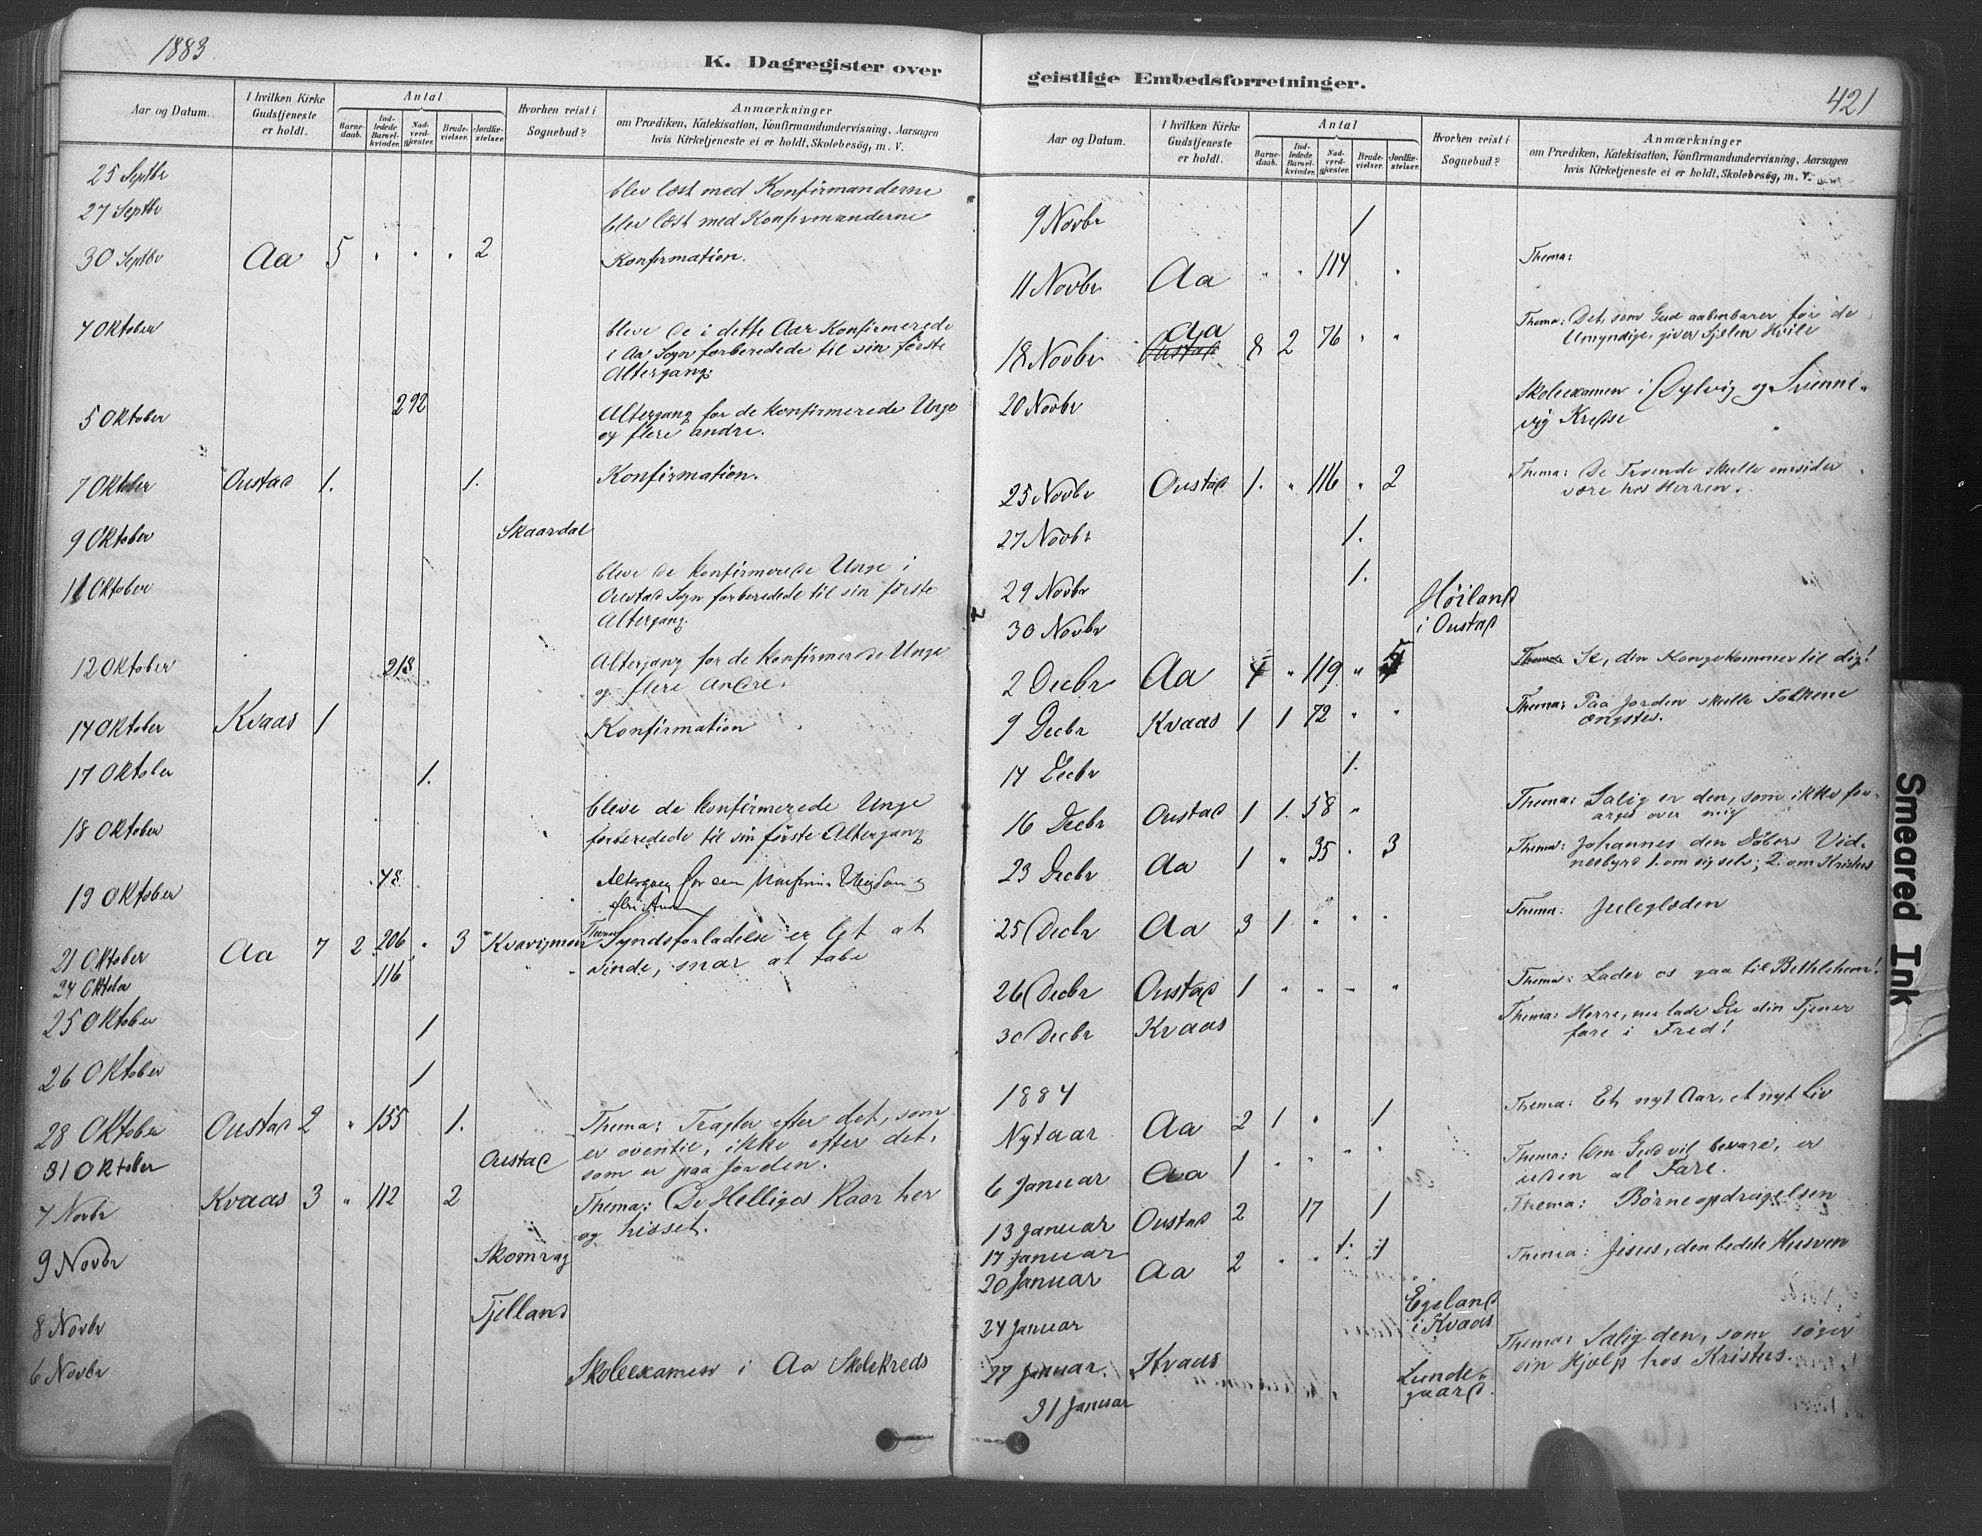 1883
K. Dagregister over
Aar og Datum.
I hvilken Kirke
Gudstjeneste
er holdt.
Antal
Barne-
daab.
Ind-
ledede
Barsel-
kvinder.
Nad-
verd-
gjester.
Brude-
vielser.
Jordfæ-
stelser.
Hvorhen reist i
Sognebud?
Anmærkninger
om Prædiken, Katekisation, Konfirmandundervisning, Aarsagen
hvis Kirketjeneste ei er holdt, Skolebesøg, m. V.
25 Septbr
blev læst med Konfirmanderne
27 Septbr
blev læst med Konfirmanderne
30 Septbr Aa 5 " " " 2 Konfirmation.
4 Oktober
bleve de i dette Aar Konfirmerede
i Aa Sogn forberedede til sin første
Altergang.
5 Oktober 292 Altergang for de konfirmerede Unge
og flere andre.
7 Oktober Oustad 1. 1. Konfirmation.
9 Oktober Skaardal
11 Oktober bleve de konfirmerede Unge i
Oustad Sogn forberedede til sin første
Altergang.
12 Oktober 218 Altergang for de konfirmerede Unge
og flere Andre.
14 Oktober Kvaas 1 Konfirmation
17 Oktober 1.
18 Oktober bleve de konfirmerede Unge
forberedede til sin første Altergang
19 Oktober 48 Altergang for
21 Oktober Aa 7 2 206 " 3 Kvavigmon Thema: Syndsforladelse er let at
24 Oktober 116 vinde, snar at tabe
25 Oktober 1
26 Oktober 1
28 Oktober Oustad 2 " 155 1. Thema: Tragter efter det, som
er oventil, ikke efter det,
31 Oktober Oustad som er paa Jorden.
4 Novbr Kvaas 3 " 112 2 Thema: De Helliges Kaar her
og hisset.
9 Novbr Skomrag
8 Novbr Tjelland
6 Novbr Skoleexamen i Aa Skolekreds
geistlige Embedsforretninger.
421
Aar og Datum.
I hvilken Kirke
Gudstjeneste
er holdt.
Antal
Barne-
daab.
Ind-
ledede
Barsel-
kvinder.
Nad-
verd-
gjester.
Brude-
vielser.
Jordfæ-
stelser.
Hvorhen reist i
Sognebud?
Anmærkninger
om Prædiken, Katekisation, Konfirmandundervisning, Aarsagen
hvis Kirketjeneste ei er holdt, Skolebesøg, m. V.
9 Novbr 1
11 Novbr Aa " " 114 " Thema:
Thema: Det, som Gud aabenbarer for de
Aa
18 Novbr Oustad 8 2 76 " " Umyndige, giver Sjelen Hvile
20 Novbr Skoleexamen i Dylvig og Svenne-
vig Kredse
25 Novbr Oustad 1. " 116 " 2 Thema: De Troende skulle omsider
være hos Herren.
27 Novbr 1.
29 Novbr 1.
30 Novbr Høiland
i Oustad
2 Decbr Aa " 119 " Thema: Se, din Konge kommer til dig!
9 Decbr Kvaas 1 1 72 " " Thema: Paa Jorden skulle Folkene
ængstes.
14 Decbr 1.
16 Decbr Oustad 1 1. 58 " Thema: Salig er den, som ikke for-
arges over mig
23 Decbr Aa 1 " 35 " 3 Thema: Johannes den Døbers Vid-
nesbyrd 1. om sig selv; 2. om Kristus
25 Decbr Aa 3 1 " " " Thema: Juleglæden
26 Decbr Oustad 1 " " " " Thema: Lader os gaa til Bethlehem!
30 Decbr Kvaas Thema: Herre, nu lade Du din Tjener
fare i Fred!
1884
Nytaar Aa 2 1 " 1 Thema: Et nyt Aar, et nyt Liv
6 Januar Aa 1 " " " " Thema: Den Gud vil bevare, er
uden al Fare.
13 Januar Oustad 2 17 1 Thema: Børneopdragelsen
17 Januar 1.
20 Januar Aa 2 " " 1 Thema: Jesus, den bedste Husven
24 Januar Egeland
i Kvaas
27 Januar. Kvaas Thema: Salig den, som søger
sin Hjælp hos Kristus.
31 Januar Lunde-
gaard.
Smeared Ink